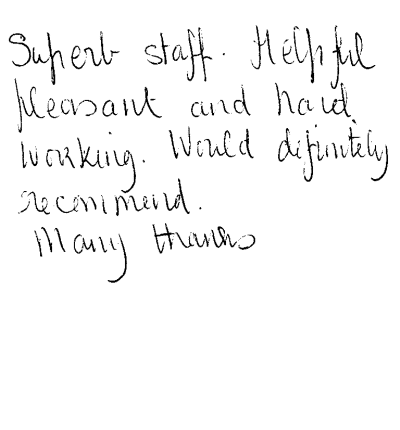 Superb staff. Helpful
pleasant and hard
working. Would definitely
recommend.
Many thanks